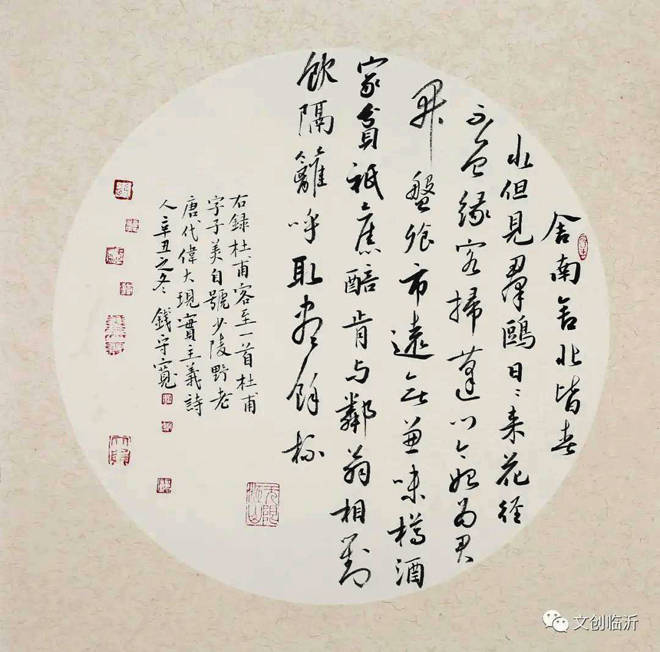 舍南舍北皆春
水但見羣鷗日〻来花径
不曾緣客掃蓬门今始为君
開盤飧市遠无兼味樽酒
家貧祗舊醅肯与鄰翁相對
飲隔籬呼取盡餘杯
右録杜甫客至一首杜甫
字子美自號少陵野老
唐代偉大現實主義詩
人辛丑之冬錢守寬
文创临沂